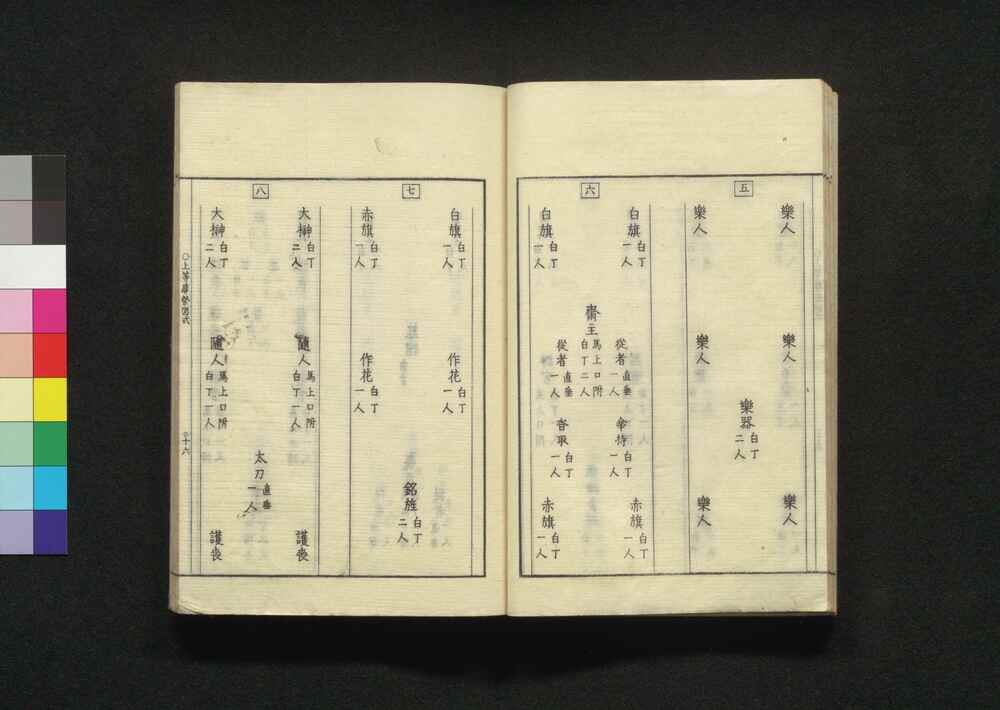 五
樂人
樂人
樂人
樂器 白丁二人
樂人
樂人
樂人
六
白旗 白丁一人
從者 直垂一人
傘持 白丁一人
赤旗 白丁一人
齋主 馬上口附白丁二人
白旗 白丁一人
從者 直垂一人
沓取 白丁一人
赤旗 白丁一人
七
白旗 白丁一人
作花 白丁一人
銘旌 白丁二人
赤旗 白丁一人
作花 白丁一人
八
大榊 白丁二人
隨人 馬上口附白丁一人
護喪
太刀 直垂一人
大榊 白丁二人
隨人 馬上口附白丁一人
護喪
○上等葬祭圖式
○十六